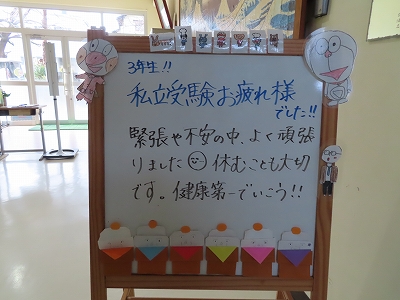 3年生!!
私立受験お疲れ様
でした!!
緊張や不安の中、よく頑張
りました 休むことも大切
です。健康第一でいこう!!